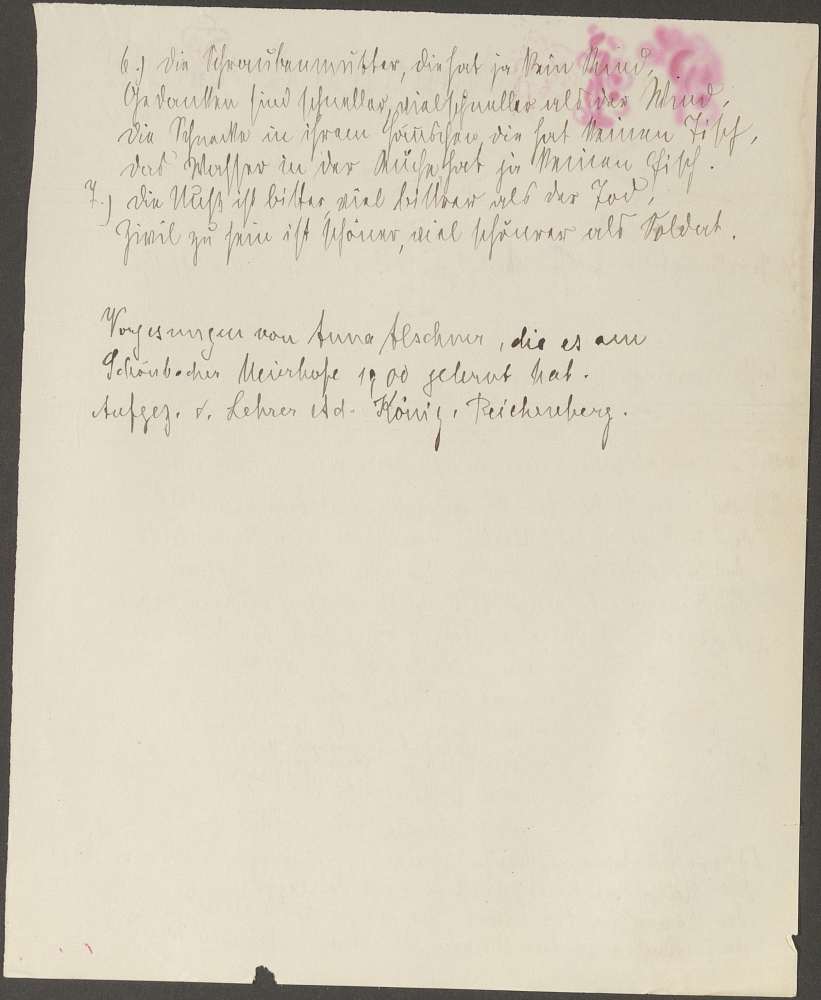 6.) Die Schraubenmutter, die hat ja kein Kind,
Gedanken sind schneller, viel schneller als der Wind,
die Schnecke in ihrem Häuschen die hat keinen Tisch,
das Wasser in der Küche hat ja keinen Fisch.
7.) Die Nuß ist bitter, viel bittrer als der Tod,
Zivil zu sein ist schöner, viel schönrer als Soldat.
Vorgesungen von Anna Alschner, die es am
Schönbacher Meierhofe 1900 gelernt hat.
Aufgez. v. Lehrer Ad. König, Reichenberg.